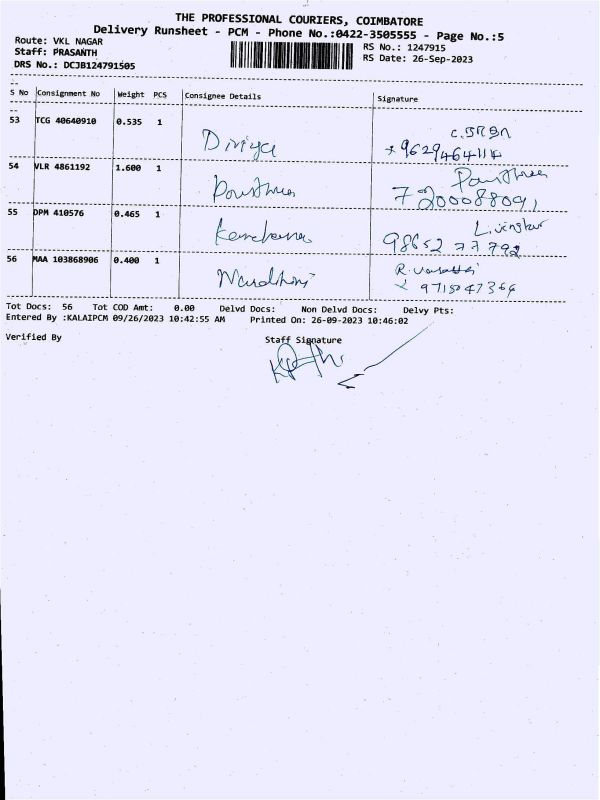 THE PROFESSIONAL COURIERS, COIMBATORE
Delivery Runsheet - PCM - Phone No.:0422-3505555 - Page No.:5
Route: VKL NAGAR
RS No.: 1247915
Staff: PRASANTH
RS Date: 26-Sep-2023
DRS No.: DCJB124791505
S No Consignment No Weight PCS Consignee Details Signature
53 TCG 40640910 0.535 1
Diviya
54 VLR 4861192 1.600 1
7200088091
55 DPM 410576 0.465 1
98652 77792
56 MAA 103868906 0.400 1
9715047364
Tot Docs: 56 Tot COD Amt: 0.00 Delvd Docs: Non Delvd Docs: Delvy Pts:
Entered By :KALAIPCM 09/26/2023 10:42:55 AM Printed On: 26-09-2023 10:46:02
Verified By Staff Signature